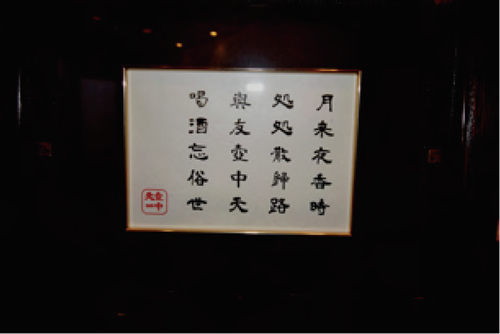 月来夜香時
処処散歸路
與友壺中天
喝酒忘俗世
壺中
天